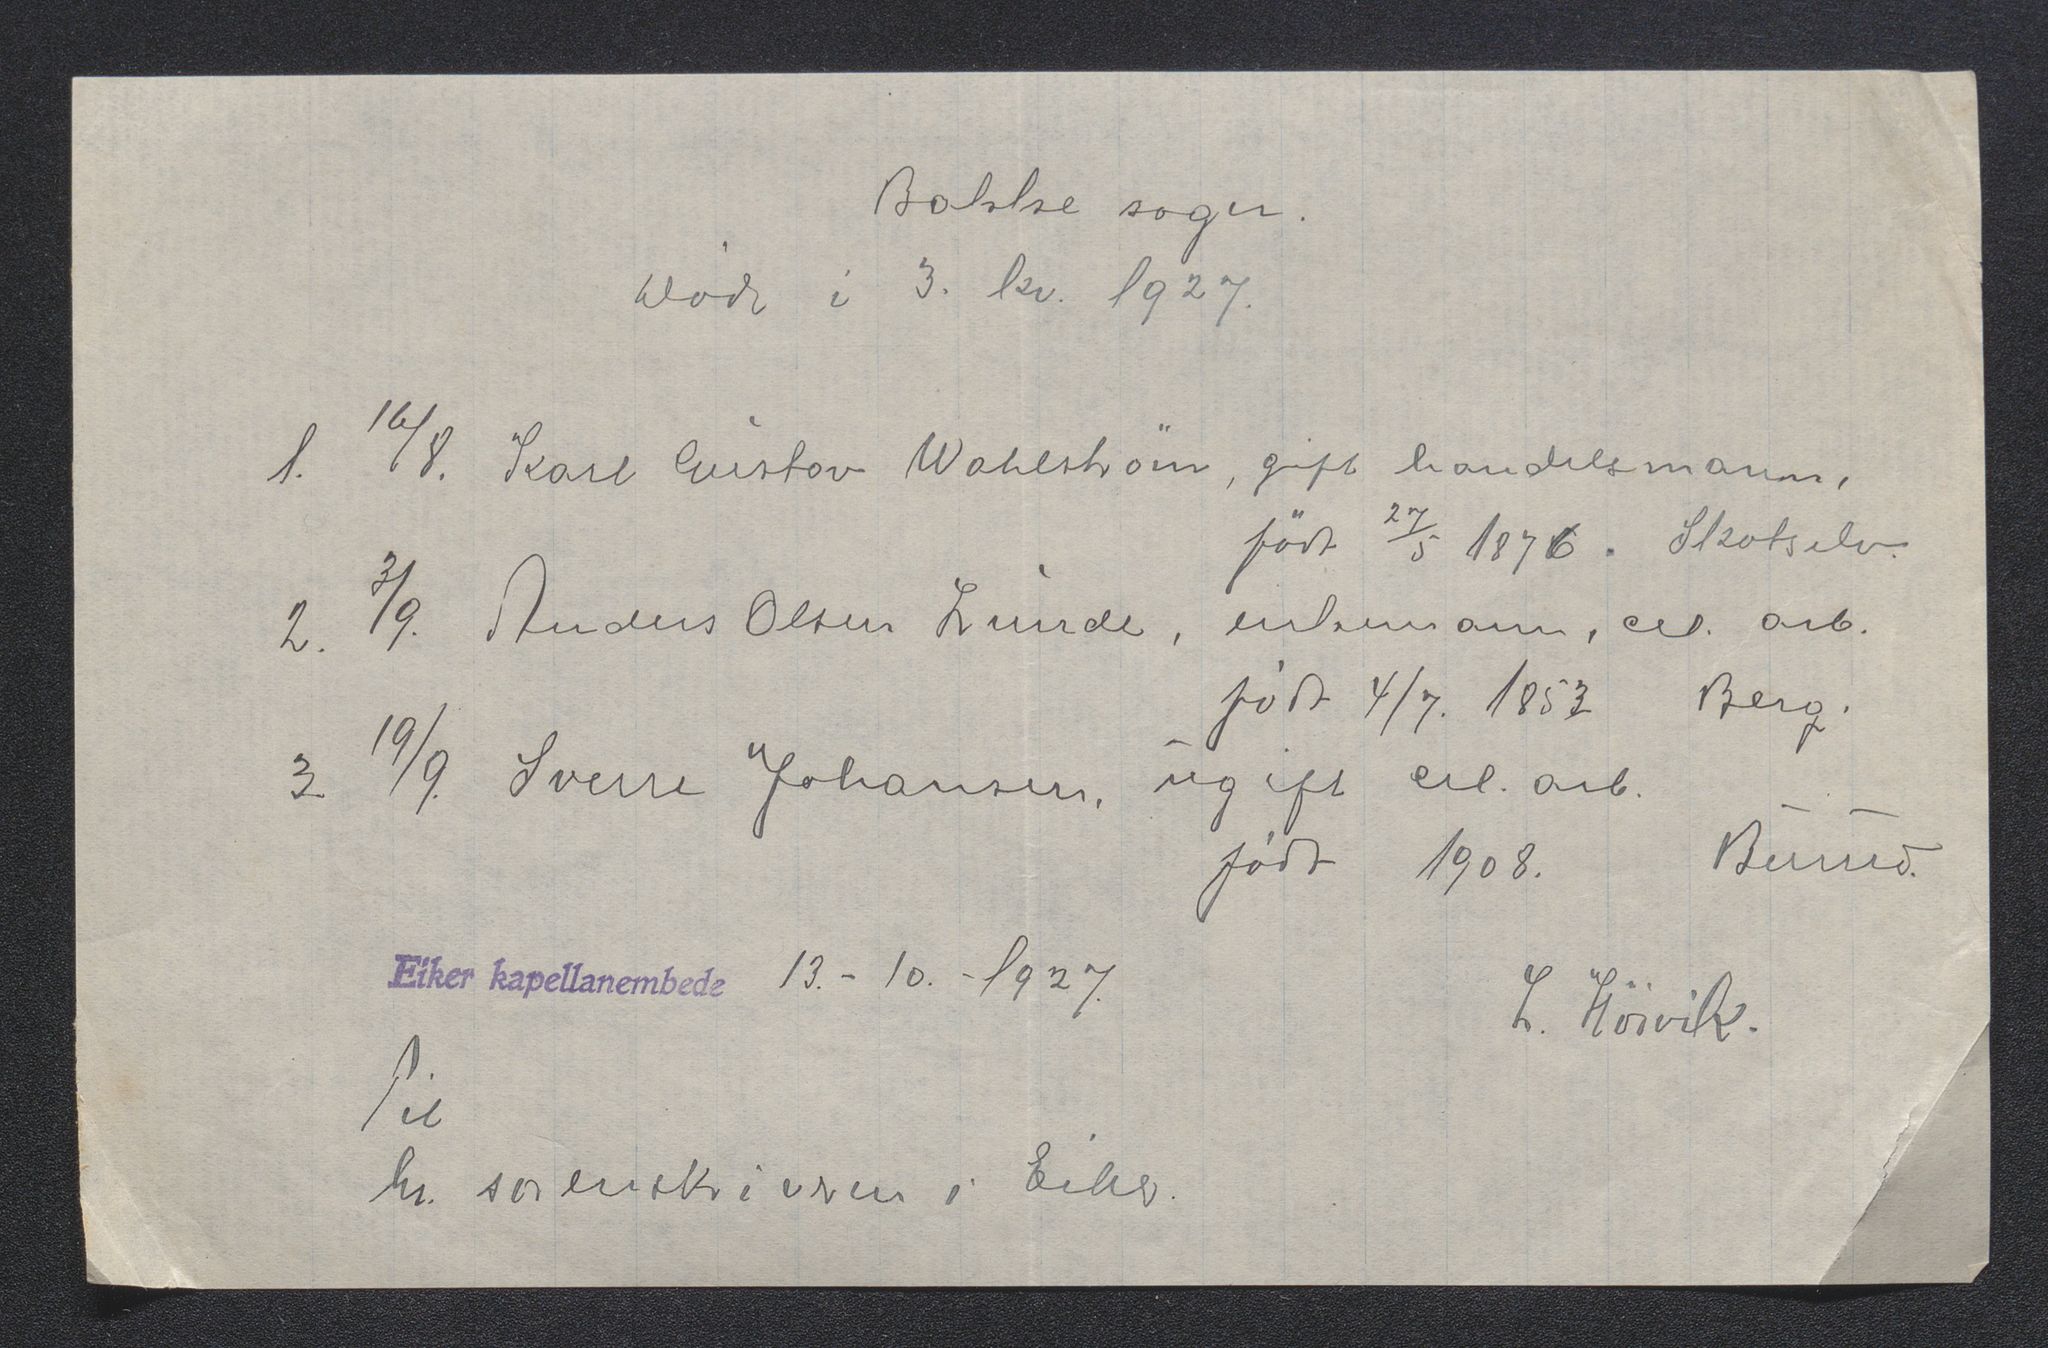 Bakke sogn.
Døde i 3. kv. 1927.
1. 16/8. Karl Gustav Wahlström, gift handelsmann,
født 27/5 1876. Skotselv.
2. 3/9. Anders Olsen Lunde, enkemann, arb.
født 4/7. 1853 Berg.
3. 19/9. Sverre Johansen, ugift arb.
født 1908.
Eiker kapellanembede 13.-10.-1927.
L. Hörvik.
Til
hr. sorenskriveren i Eiker.